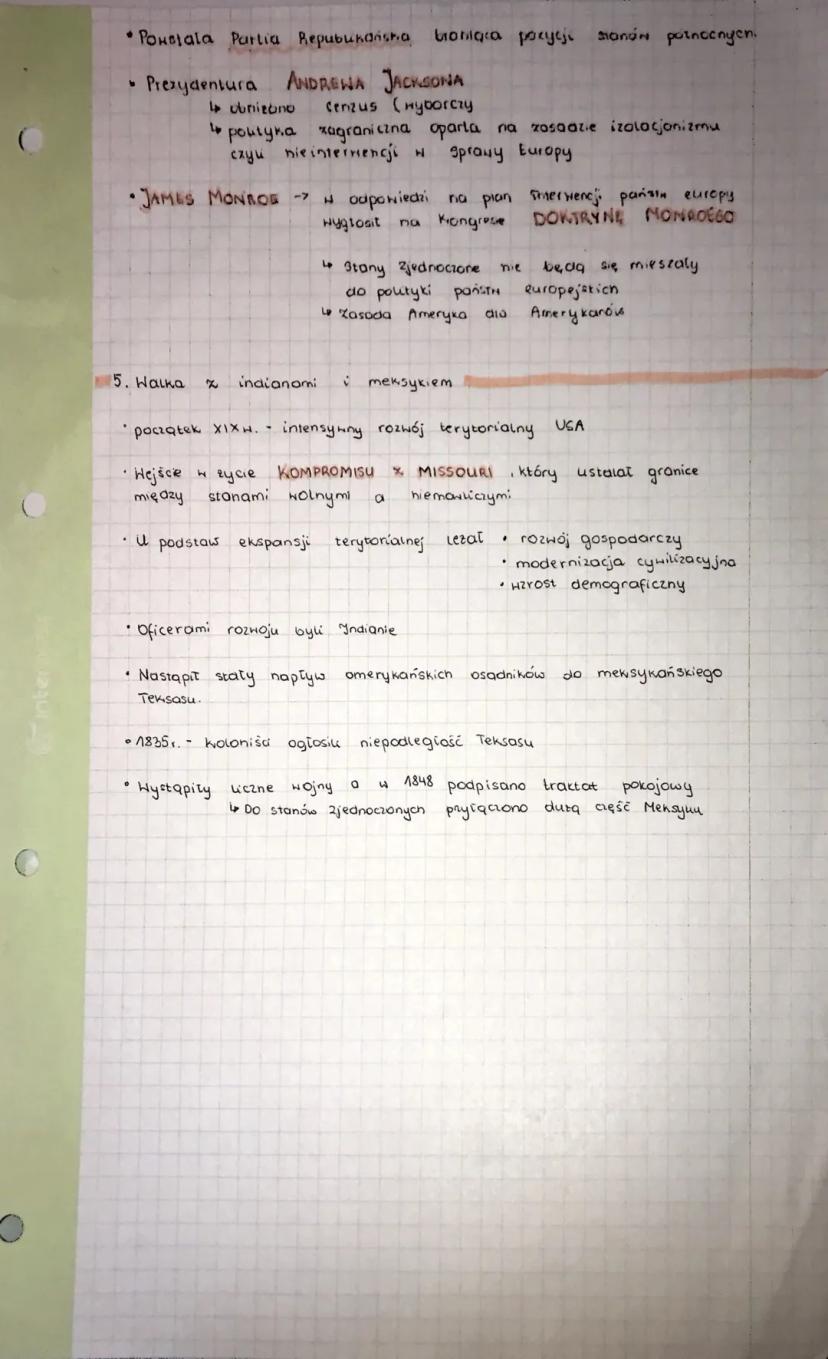 • Powstała Partia Republikańska broniąca pozycji stanów północnych.
• Prezydentura ANDREWA JACKSONA
↳ obniżono cenzus (wyborczy
↳ polityka zagraniczna oparta na zasadzie izolacjonizmu
czyli nieinterwencji w sprawy Europy
• JAMES MONROE -> w odpowiedzi na plan interwencji państw europy
wygłosił na Kongresie DOKTRYNĘ MONROEGO
↳ Stany Zjednoczone nie będą się mieszały
do polityki państw europejskich
↳ Zasada Ameryka dla Amerykanów
5. Walka z indianami i meksykiem
• początek XIX w. - intensywny rozwój terytorialny USA
• Wejście w życie KOMPROMISU Z MISSOURI, który ustalał granice
między stanami wolnymi a niewolniczymi
• U podstaw ekspansji terytorialnej leżał • rozwój gospodarczy
• modernizacja cywilizacyjna
• wzrost demograficzny
• Oficerami rozwoju byli Indianie
• Nastąpił stały napływ amerykańskich osadników do meksykańskiego
Teksasu.
• 1835r. - koloniści ogłosili niepodległość Teksasu
• Wystąpiły liczne wojny a w 1848 podpisano traktat pokojowy
↳ Do stanów zjednoczonych przyłączono dużą część Meksyku